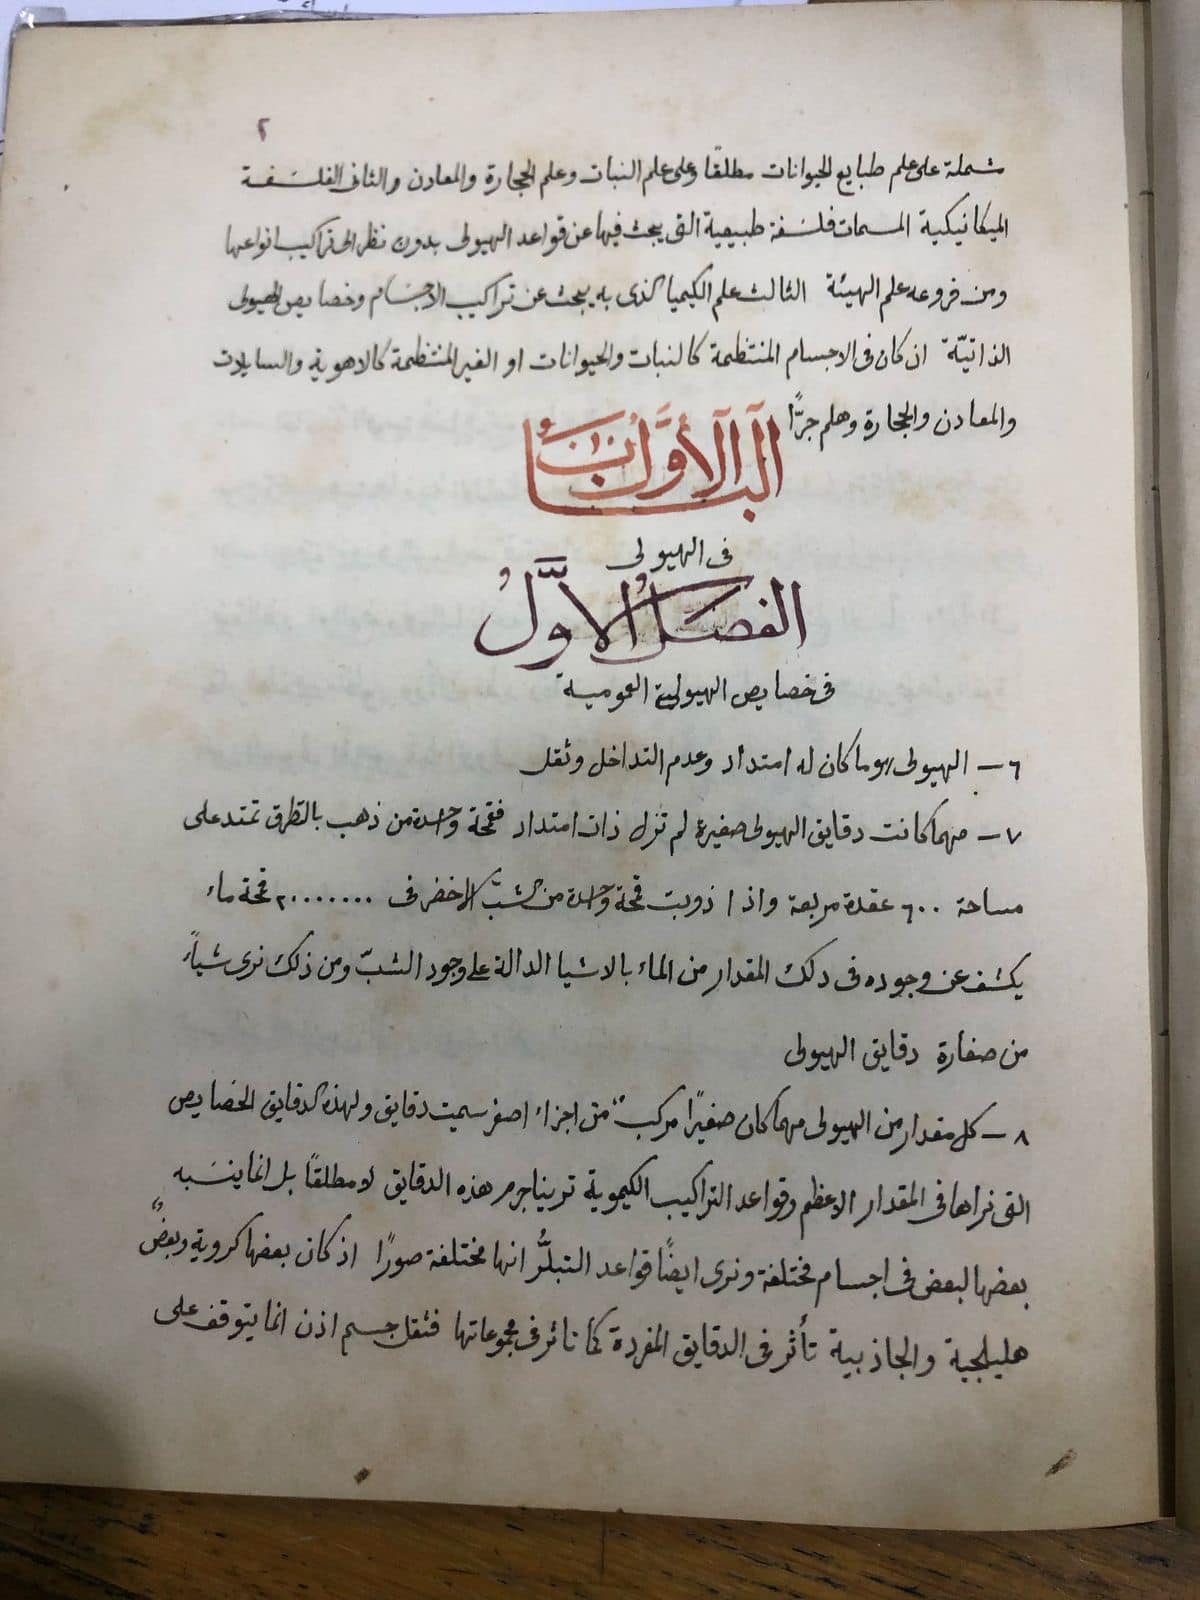 ٢
شملة على علم طبايع الحيوانات مطلقًا وعلى علم النبات وعلم الحجارة والمعادن والثانى الفلسفة
الميكانيكية المسمات فلسفة طبيعية التى يبحث فيها عن قواعد الهيولى بدون نظر الى تراكيب انواعها
ومن فروعه علم الهيئة الثالث علم الكيميا الذى به يبحث عن تراكيب الاجسام وخصايص الهيولى
الذاتيّة ان كان فى الاجسام المنتظمة كالنبات والحيوانات او الغير المنتظمة كالاهوية والسايلات
والمعادن والحجارة وهلم جرًّا
الباب الأوّل
فى الهيولى
الفصل الاوّلُ
فى خصايص الهيولية العمومية
٦ – الهيولى هو ما كان له امتداد وعدم التداخل وثقل
٧ – مهما كانت دقايق الهيولى صغيرة لم تزل ذات امتداد فقمحة واحدة من ذهب بالتطرق تمتد على
مساحة ٦٠٠ عقدة مربعة واذا ذوبت قمحة واحدة من الشبّ الاخضر فى ٢٠٠٠٠٠٠٠ قمحة ماء
يكشف عن وجوده فى ذلك المقدار من الماء بالاشيا الدالة على وجود الشبّ ومن ذلك نرى شياءً
من صغارة دقايق الهيولى
٨ – كل مقدار من الهيولى مهما كان صغيرًا مركبٌ من اجزاء اصغر سميت دقايق ولهذه الدقايق الخصايص
التى نراها فى المقدار الاعظم وقواعد التراكيب الكيموية ترينا جرم هذه الدقايق لا مطلقًا بل انما ينسبه
بعضها لبعض فى اجسام مختلفة ونرى ايضًا قواعد التبلُّر انها مختلفة صورًا اذ كان بعضها كروية وبعضٌ
هليلجية والجاذبية تأثر فى الدقايق المفردة كما تاثر فى مجموعاتها فثقل جسم اذن انما يتوقف على